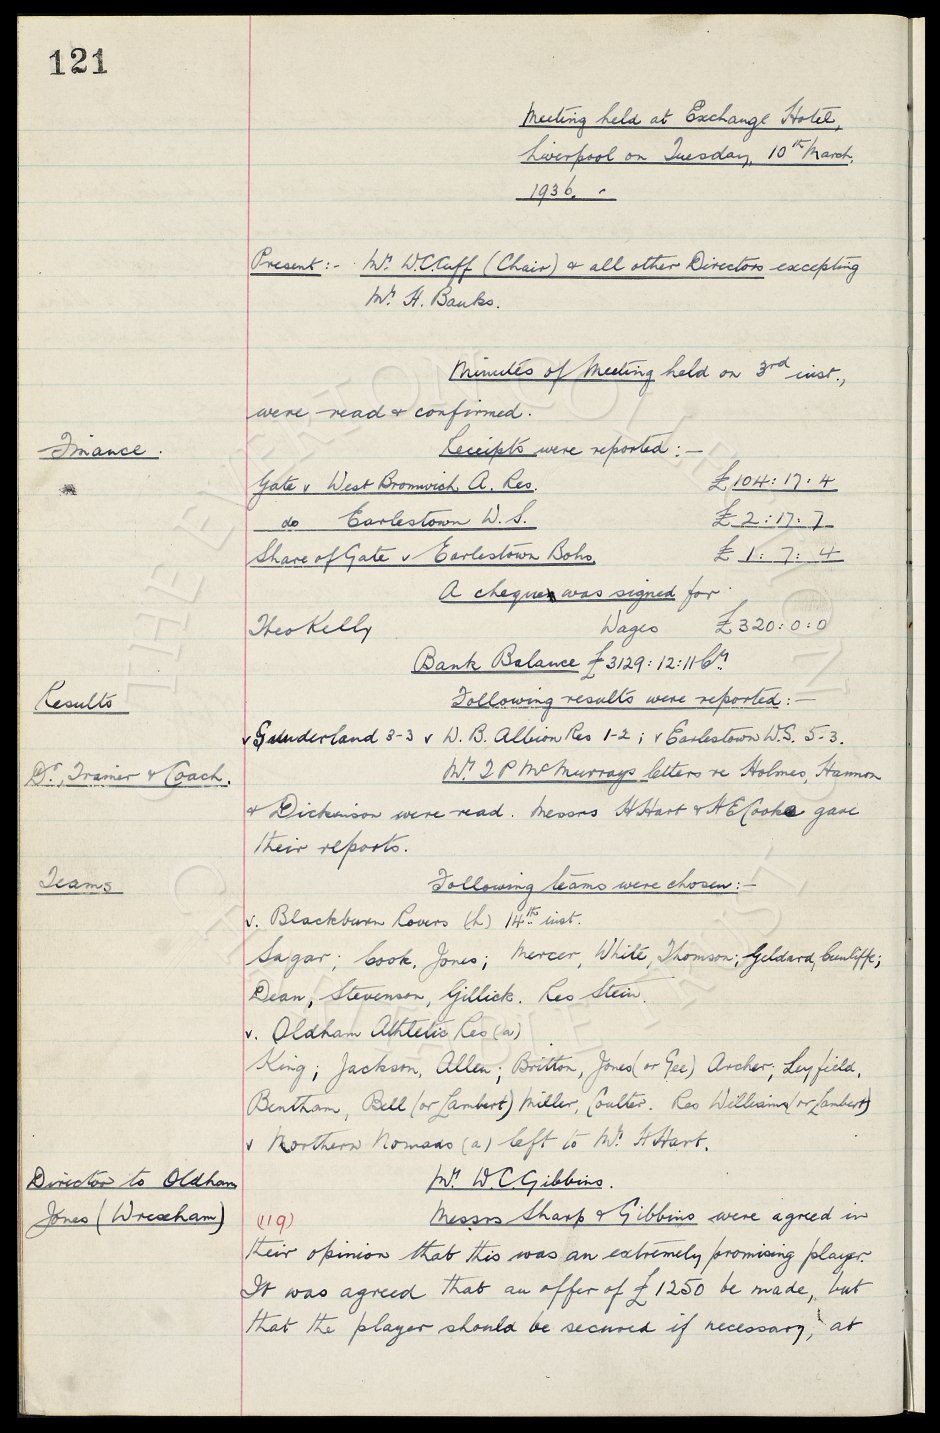 121
Meeting held at Exchange Hotel,
Liverpool on Tuesday, 10th March,
1936. -
Present:- Mr. W.C. Cuff (Chair) & all other Directors excepting
Mr. H. Banks.
Minutes of Meeting held on 3rd inst.,
were read & confirmed.
Finance. Receipts were reported:-
Gate v West Bromwich A. Res. £104:17:4
do Earlestown W.S. £2:17:7
Share of Gate v Earlestown Bohs. £1:7:4
A cheque was signed for
Theo Kelly Wages £320:0:0
Bank Balance £3129:12:11 Cr.
Results Following results were reported:-
v Sunderland 3-3 v W.B. Albion Res 1-2; v Earlestown W.S. 5-3.
Dr., Trainer & Coach. Mr. J P McMurrays letters re Holmes, Hannon
& Dickinson were read. Messrs H Hart & H E Cooke gave
their reports.
Teams Following teams were chosen:-
v. Blackburn Rovers (h) 14th inst.
Sagar; Cook, Jones; Mercer, White, Thomson; Geldard, Cunliffe;
Dean, Stevenson, Gillick. Res Stein.
v. Oldham Athletic Res (a)
King; Jackson, Allen; Britton, Jones (or Gee) Archer; Leyfield,
Bentham, Bell (or Lambert) Miller, Coulter. Res Williams (or Lambert)
v Northern Nomads (a) left to Mr. H Hart.
Director to Oldham Mr. W.C. Gibbins.
Jones (Wrexham) (119) Messrs Sharp & Gibbins were agreed in
their opinion that this was an extremely promising player.
It was agreed that an offer of £1250 be made, but
that the player should be secured if necessary, at